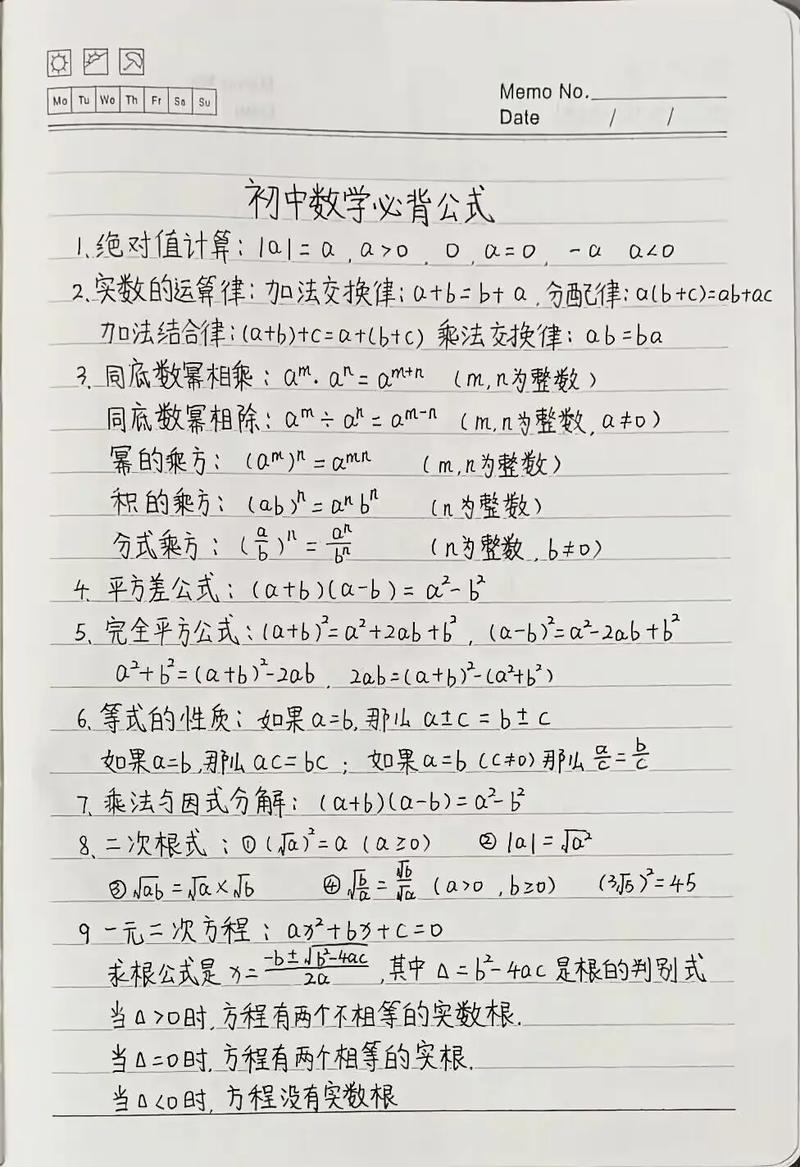 Mo Tu We Th Fr Sa Su
Memo No.
Date / /
初中数学必背公式
1、绝对值计算：|a|=a，a>0，0，a=0，-a a<0
2、实数的运算律：加法交换律：a+b=b+a，分配律：a(b+c)=ab+ac
加法结合律：(a+b)+c=a+(b+c) 乘法交换律：ab=ba
3、同底数幂相乘：aᵐ·aⁿ=aᵐ⁺ⁿ (m,n为整数)
同底数幂相除：aᵐ÷aⁿ=aᵐ⁻ⁿ (m,n为整数，a≠0)
幂的乘方：(aᵐ)ⁿ=aᵐⁿ (m,n为整数)
积的乘方：(ab)ⁿ=aⁿbⁿ (n为整数)
分式乘方：(a/b)ⁿ=aⁿ/bⁿ (n为整数，b≠0)
4、平方差公式：(a+b)(a-b)=a²-b²
5、完全平方公式：(a+b)²=a²+2ab+b²，(a-b)²=a²-2ab+b²
a²+b²=(a+b)²-2ab，2ab=(a+b)²-(a²+b²)
6、等式的性质：如果a=b，那么a±c=b±c
如果a=b，那么ac=bc；如果a=b (c≠0)那么a/c=b/c
7、乘法与因式分解：(a+b)(a-b)=a²-b²
8、二次根式：①(√a)²=a (a≥0) ②|a|=√a²
③√ab=√a×√b ④√(b/a)=√b/√a (a>0，b≥0) (3√5)²=45
9 一元二次方程：ax²+bx+c=0
求根公式是x=(-b±√(b²-4ac))/2a，其中Δ=b²-4ac是根的判别式
当Δ>0时，方程有两个不相等的实数根.
当Δ=0时，方程有两个相等的实根.
当Δ<0时，方程没有实数根